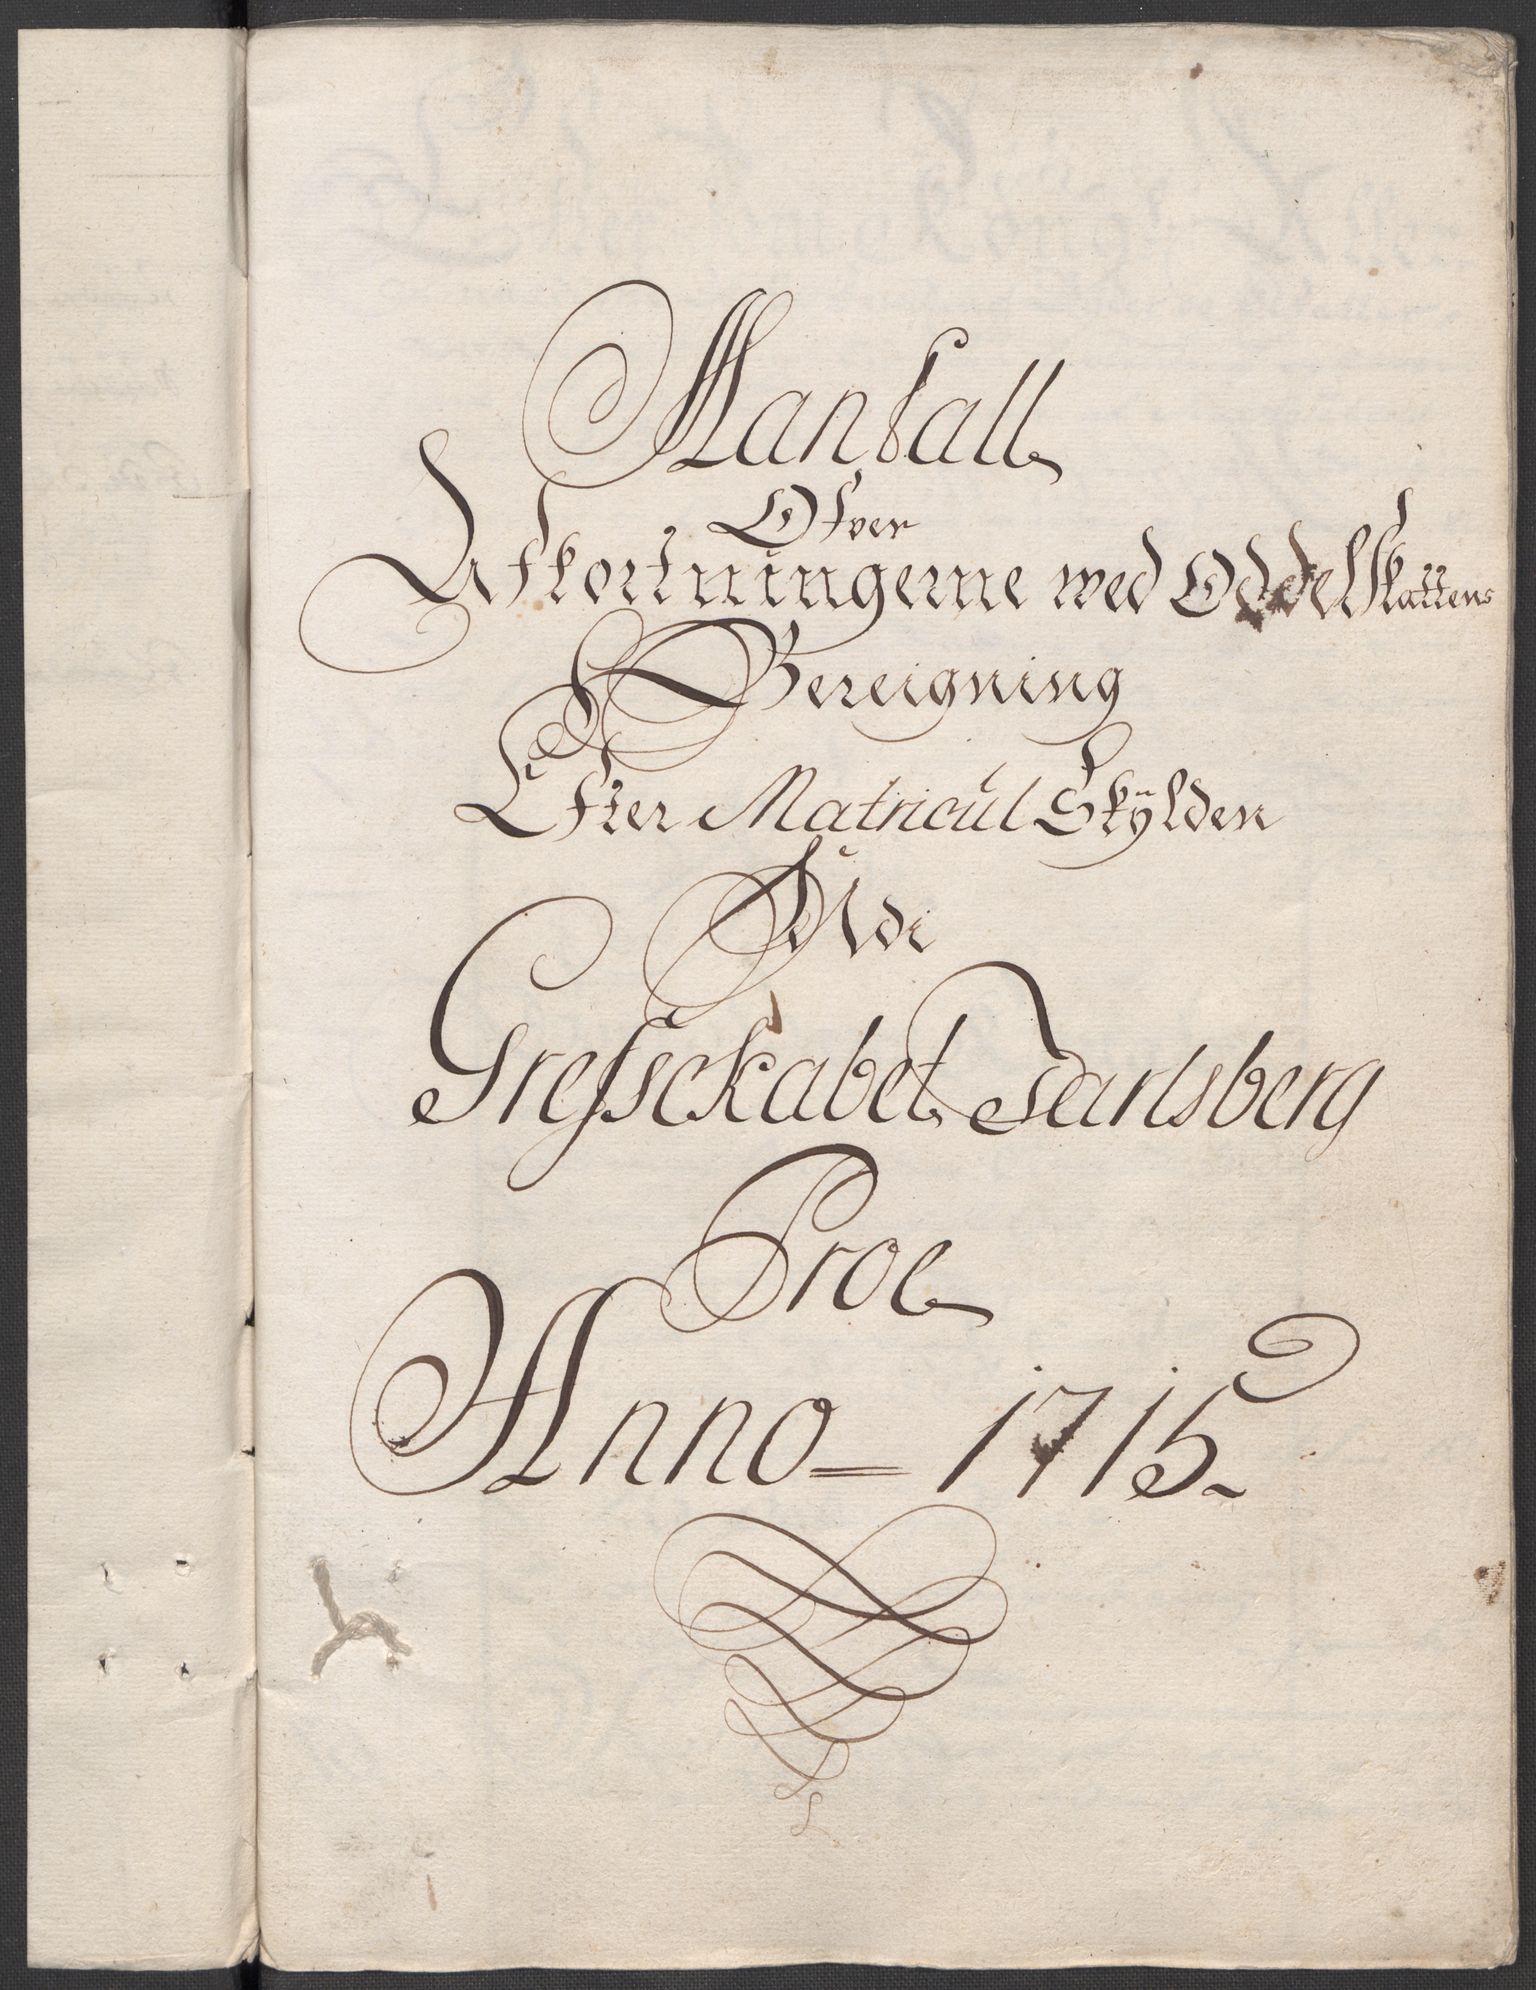 Mantall
Ofver
Afkortningerne wed Oddelskattens
Bereigning
Efter Matricul Skÿlden
Udi
Grefsckabet Jarlsberg
Proe
Anno = 1715